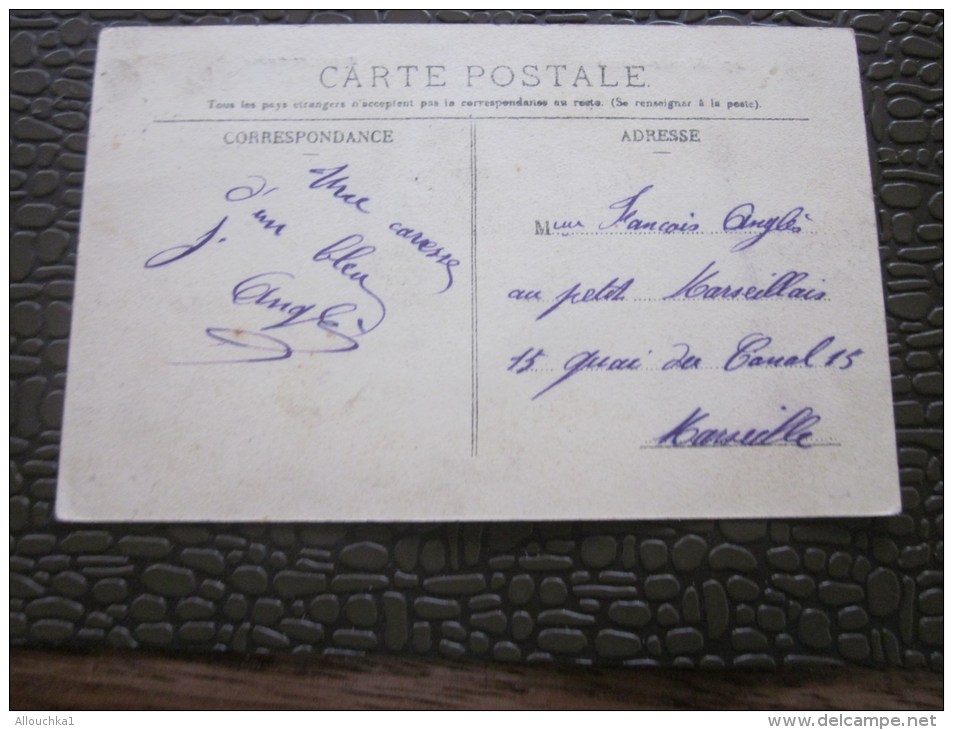 CARTE POSTALE.
Tous les pays étrangers n'acceptent pas la correspondance au recto. (Se renseigner à la poste).
CORRESPONDANCE
Une caresse
d'un bleu
J. Anglès
ADRESSE
Mme François Anglès
au petit Marseillais
15 quai du Canal 15
Marseille
Allouchka1
www.delcampe.net